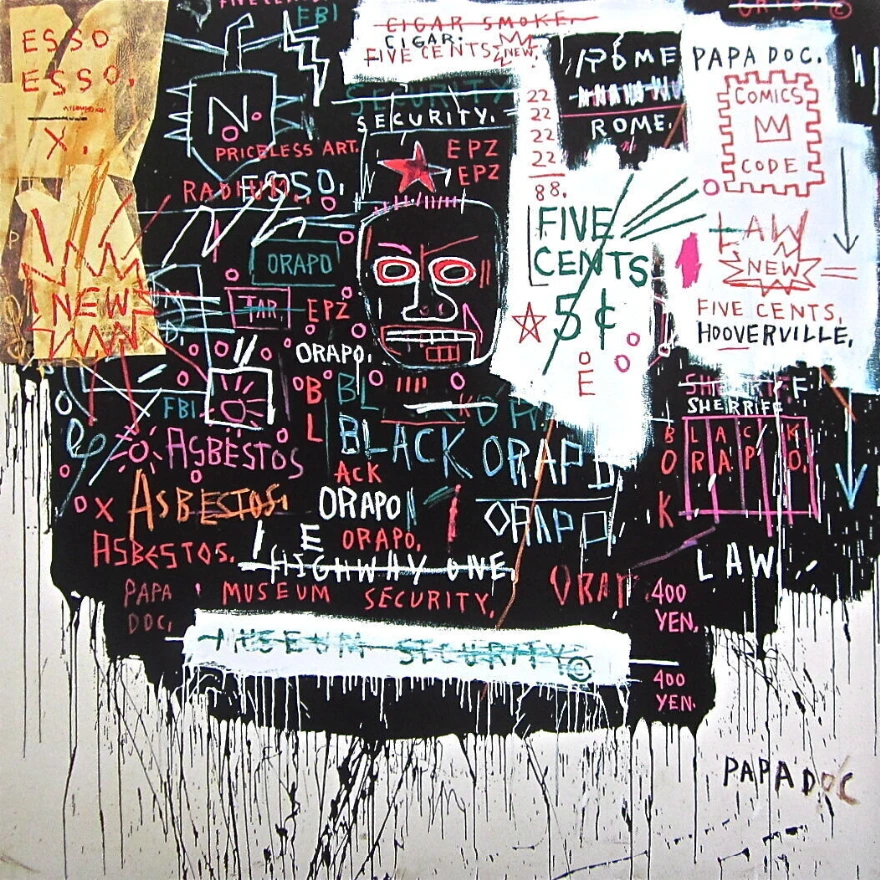 FBI
ESSO
ESSO.
X.
NEW
CIGAR SMOKE.
CIGAR:
FIVE CENTS NEW
SECURITY
SECURITY.
N
PRICELESS ART.
RADIUM
ESSO.
EPZ
EPZ
22
22
22
22
22
88.
ROME
ROME.
PAPA DOC.
COMICS
CODE
LAW
NEW
FIVE CENTS.
HOOVERVILLE.
FIVE
CENTS
5¢
E
ORAPO
TAR
EPZ
ORAPO.
FBI
B
L
BL
BLACK
ACK
ORAPO
ORAPO
ORAPO
ORAPO.
E
ASBESTOS
X ASBESTOS.
ASBESTOS.
HIGHWAY ONE.
SHERRIFF
BLACK
ORAPO.
K
LAW
PAPA
DOC.
MUSEUM SECURITY.
ORAP
400
YEN.
MUSEUM SECURITY©
400
YEN.
PAPA DOC